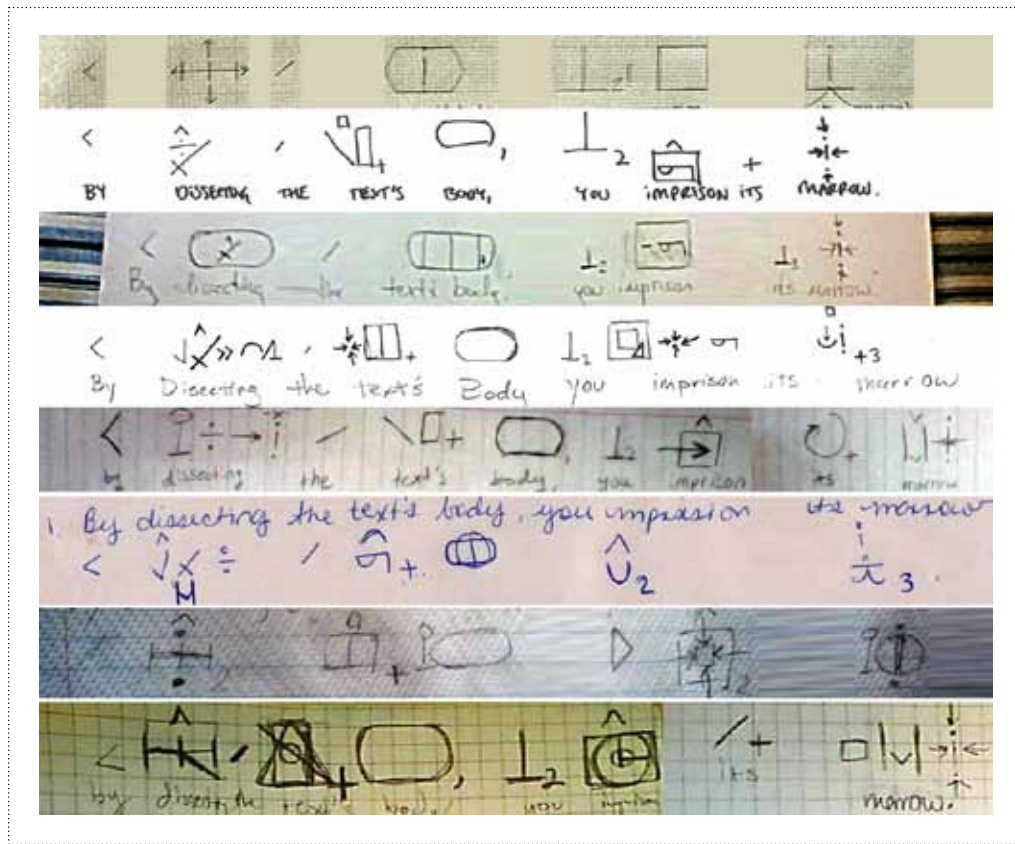 BY DISSECTING THE TEXT'S BODY, YOU IMPRISON ITS MARROW.
By disecting the text's body, you imprison its marrow.
By Disecting the text's Body you imprison its marrow
by dissecting the text's body, you imprison its marrow
1. By dissecting the text's body, you imprision its marrow
by the text's body, you its marrow.